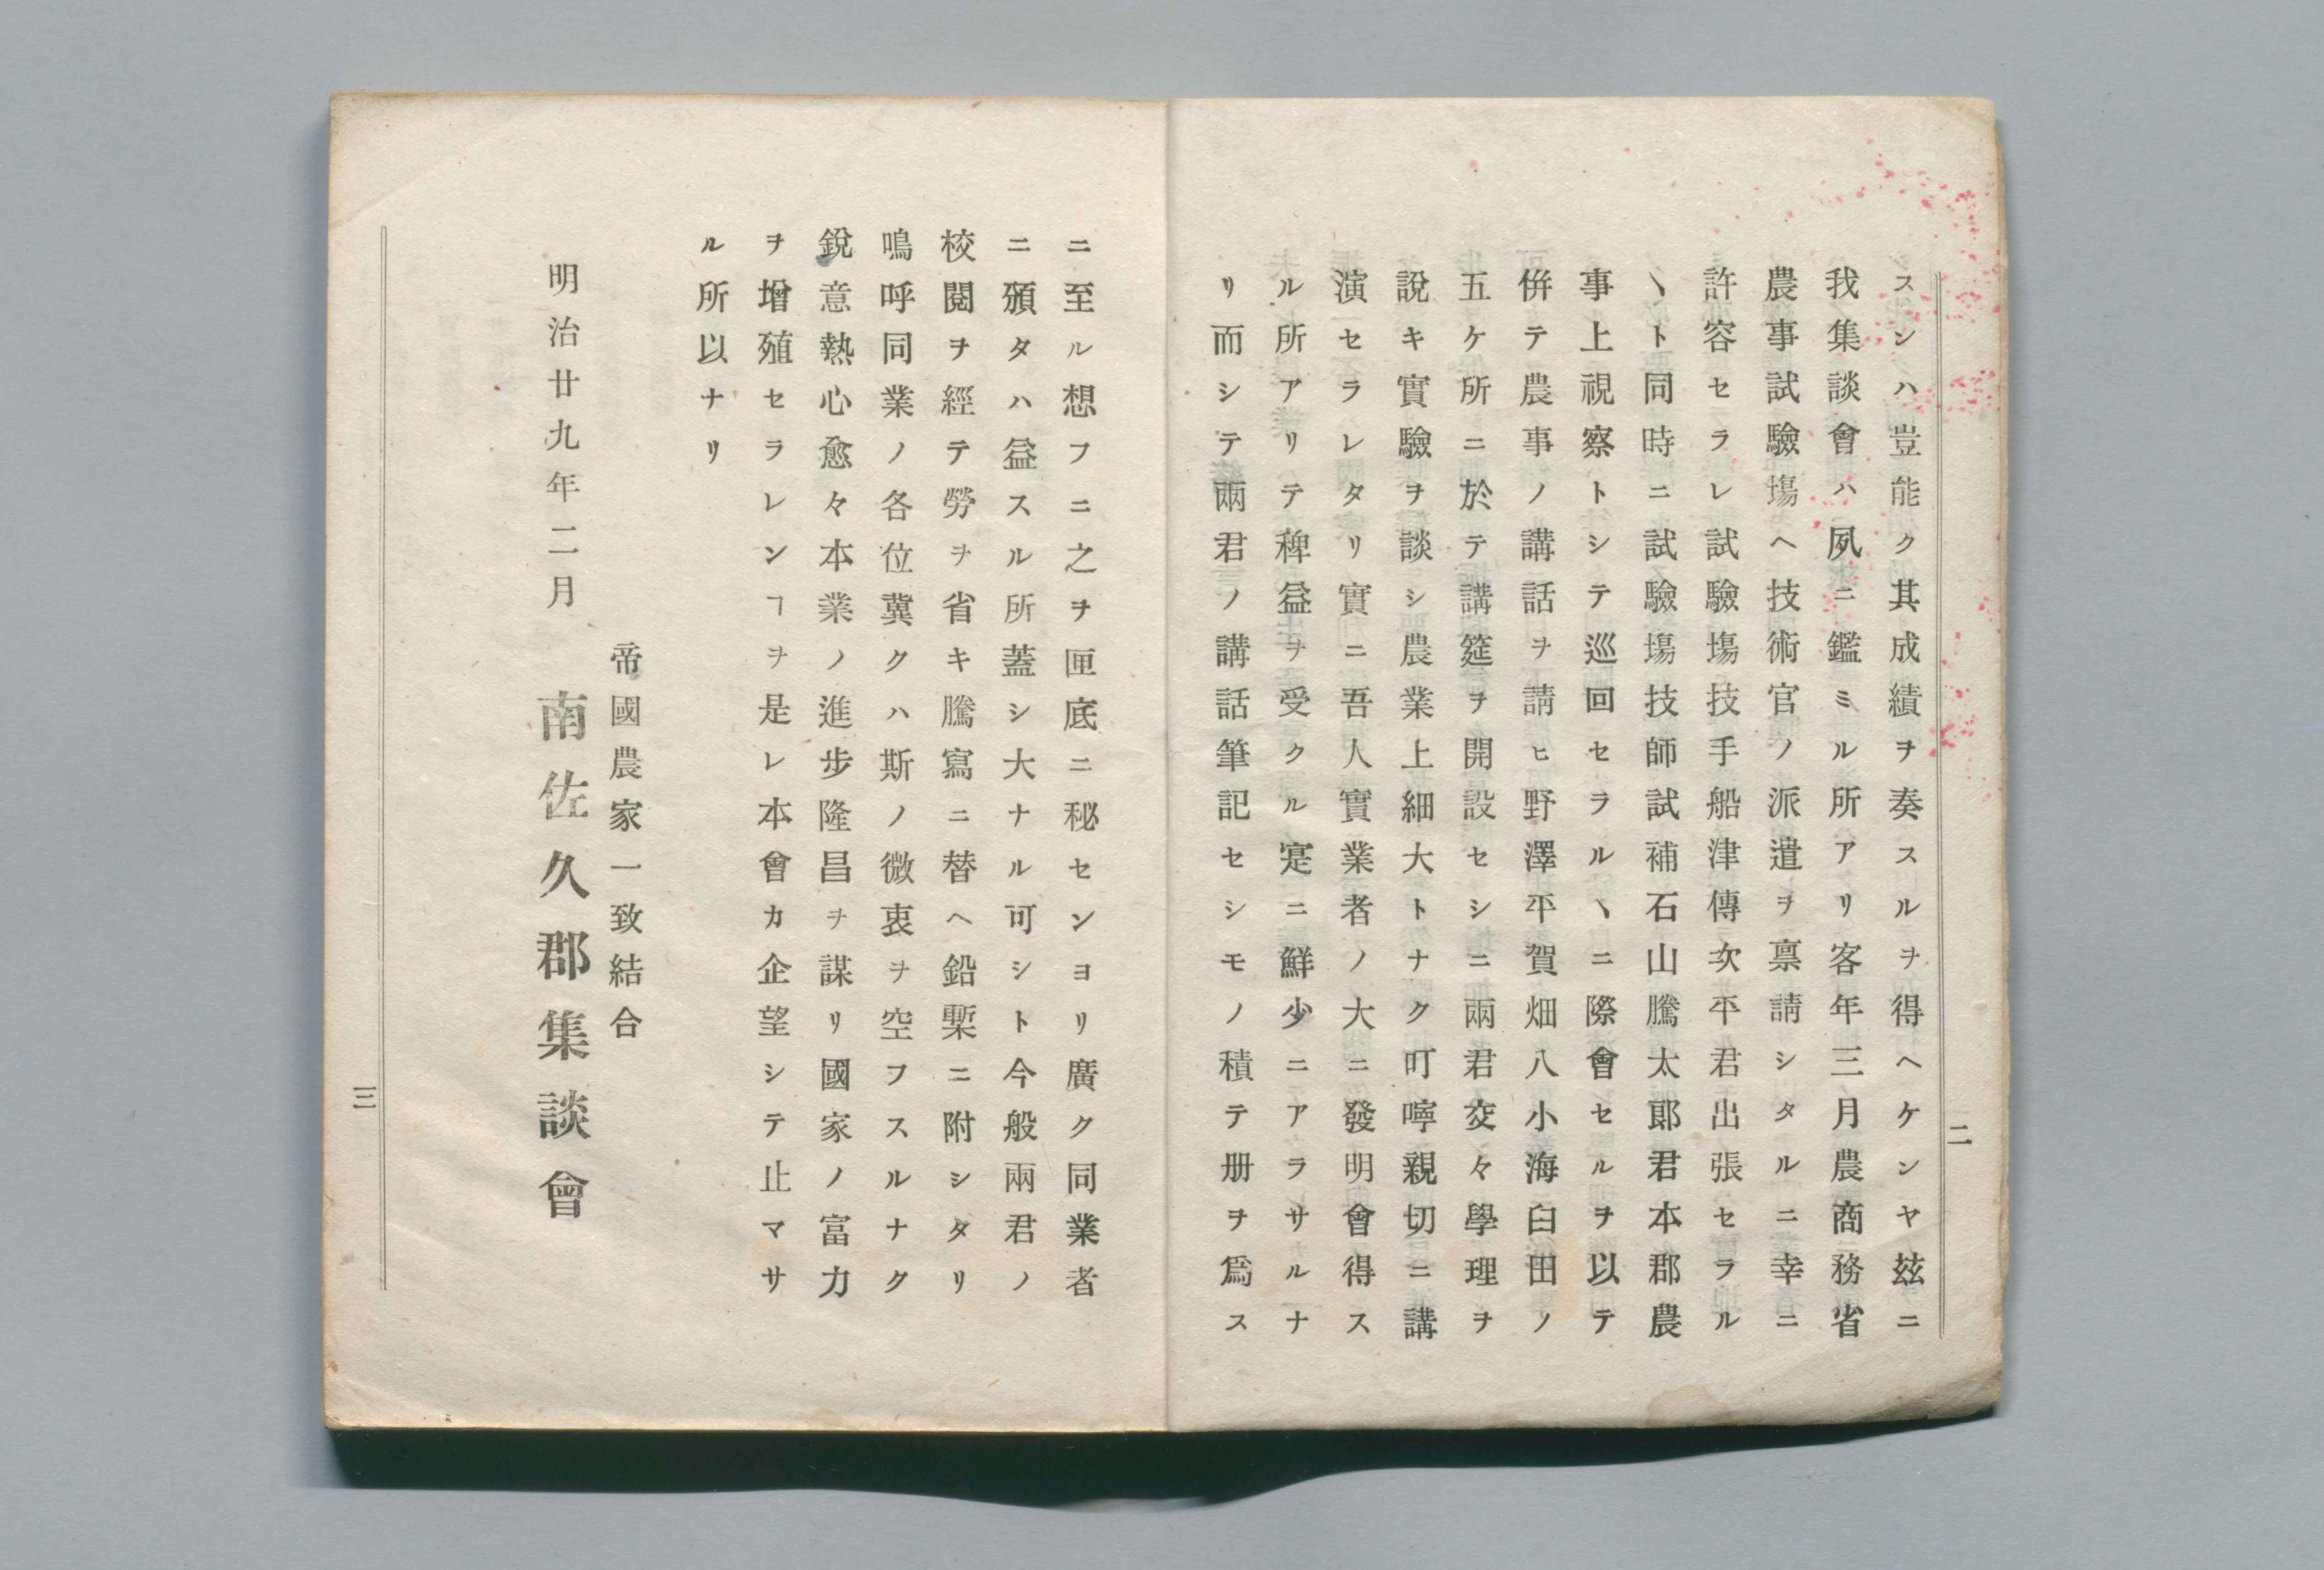 スンハ豈能ク其成績ヲ奏スルヲ得ヘケンヤ玆ニ
我集談會ハ夙ニ鑑ミル所アリ客年三月農商務省
農事試驗塲ヘ技術官ノ派遣ヲ禀請シタルニ幸ニ
許容セラレ試驗塲技手船津傳次平君出張セラル
ヽト同時ニ試驗塲技師試補石山騰太郎君本郡農
事上視察トシテ巡回セラルヽニ際會セルヲ以テ
併テ農事ノ講話ヲ請ヒ野澤平賀畑八小海臼田ノ
五ケ所ニ於テ講筵ヲ開設セシニ兩君交々學理ヲ
說キ實驗ヲ談シ農業上細大トナク叮嚀親切ニ講
演セラレタリ實ニ吾人實業者ノ大ニ發明會得ス
ル所アリテ稗益ヲ受クル寔ニ鮮少ニアラサルナ
リ而シテ兩君ノ講話筆記セシモノ積テ册ヲ爲ス
二
ニ至ル想フニ之ヲ匣底ニ秘センヨリ廣ク同業者
ニ頒タハ益スル所蓋シ大ナル可シト今般兩君ノ
校閱ヲ經テ勞ヲ省キ騰寫ニ替ヘ鉛槧ニ附シタリ
嗚呼同業ノ各位冀クハ斯ノ微衷ヲ空フスルナク
銳意熱心愈々本業ノ進步隆昌ヲ謀リ國家ノ富力
ヲ增殖セラレンヿヲ是レ本會カ企望シテ止マサ
ル所以ナリ
帝國農家一致結合
明治廿九年二月 南佐久郡集談會
三